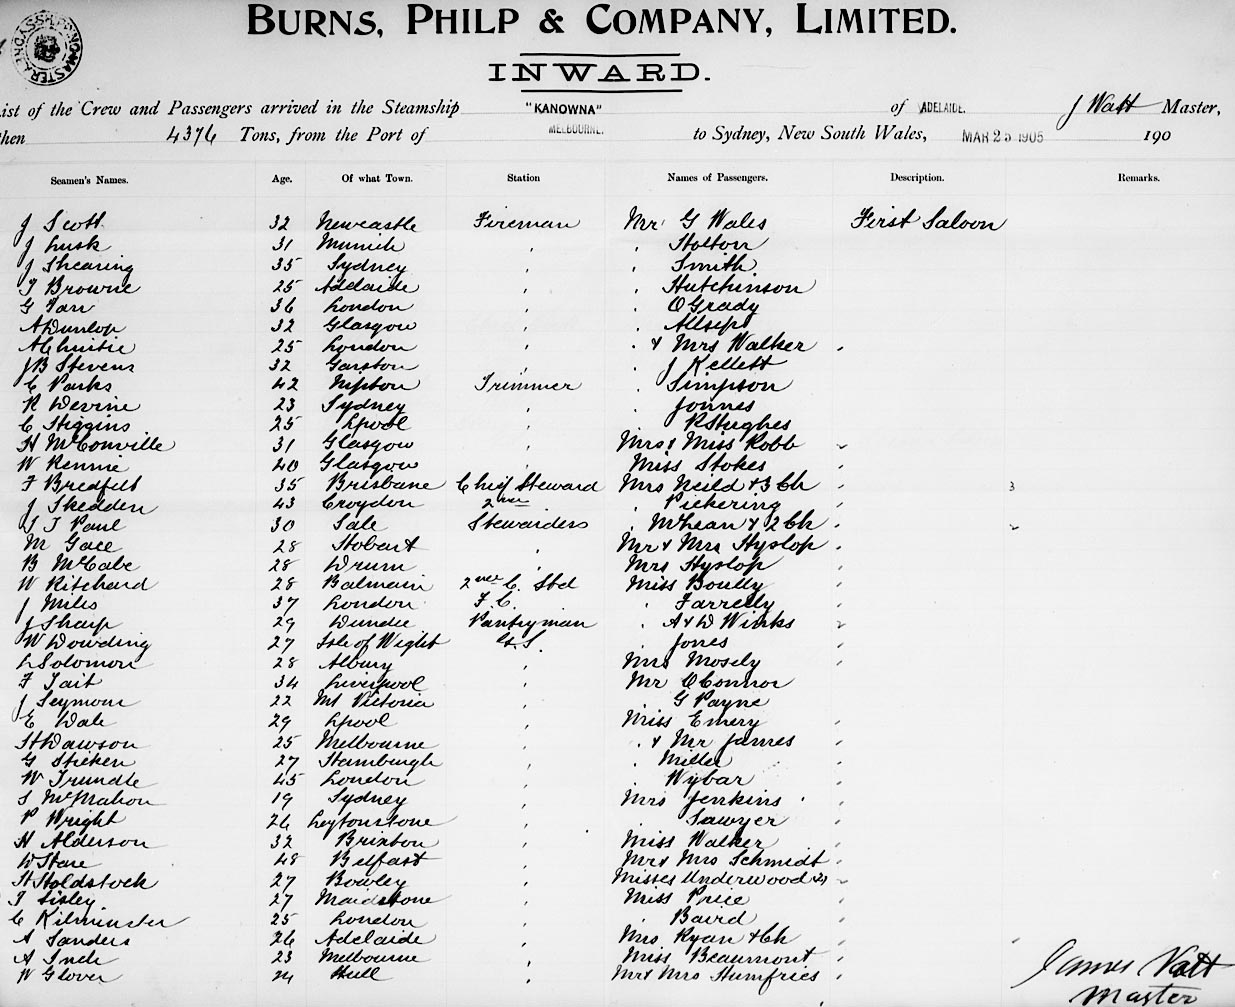 BURNS, PHILP & COMPANY, LIMITED.
INWARD.
List of the Crew and Passengers arrived in the Steamship "KANOWNA" of ADELAIDE. J Watt Master,
then 4376 Tons, from the Port of MELBOURNE. to Sydney, New South Wales, MAR 25 1905 190
Seamen's Names. Age. Of what Town. Station Names of Passengers. Description. Remarks.
J Scott 32 Newcastle Fireman Mr G Wales First Saloon
J Lusk 31 Munich Holton
J Shearing 35 Sydney Smith
T Browne 25 Adelaide Hutchinson
G Tarr 36 London O Grady
A Dunlop 32 Glasgow Allsep
A Christie 25 London & Mrs Walker
J B Stevens 32 Garston J Kellett
C Parks 42 Trimmer Simpson
R Devine 23 Sydney Jonnes
C Higgins 25 Lpool R Hughes
H McConville 31 Glasgow Mrs & Miss Robb
W Rennie 40 Glasgow Miss Stokes
F Bredfelt 35 Brisbane Chief Steward Mrs Neild & 3 Ch 3
J Skedden 43 Croydon 2nd Pickering
J T Paul 30 Sale Stewardess McLean & 2 Ch
M Gace 28 Hobart Mr & Mrs Hyslop
B McCabe 28 Mrs Hyslop
W Ritchard 28 Balmain 2nd C. Std Miss Boully
J Miles 37 London F. C. Farrelly
J Sharp 29 Dundee Pantryman A & D Winks
W Dowding 27 Isle of Wight G. S. Jones
L Solomon 28 Albury Mrs Mosely
F Tait 34 Liverpool Mr O Connor
J Seymour 22 Mt Victoria G Payne
E Dale 29 Lpool Miss Emery
H Dawson 25 Melbourne & Mr James
G Sticken 27 Hamburgh Miller
W Trundle 45 London Wybar
S McMahon 19 Sydney Mrs Jenkins
P Wright 26 Leytonstone Sawyer
H Alderson 32 Brixton Miss Walker
W Stare 48 Belfast Mr & Mrs Schmidt
H Holdstock 27 Bowley Misses Underwood (2)
T Sisley 27 Maidstone Miss Price
C Kilminster 25 London Baird
A Sanders 26 Adelaide Mrs Ryan & Ch
A Inch 23 Melbourne Miss Beaumont
W Glover 24 Hull Mr & Mrs Humfries
James Watt
Master